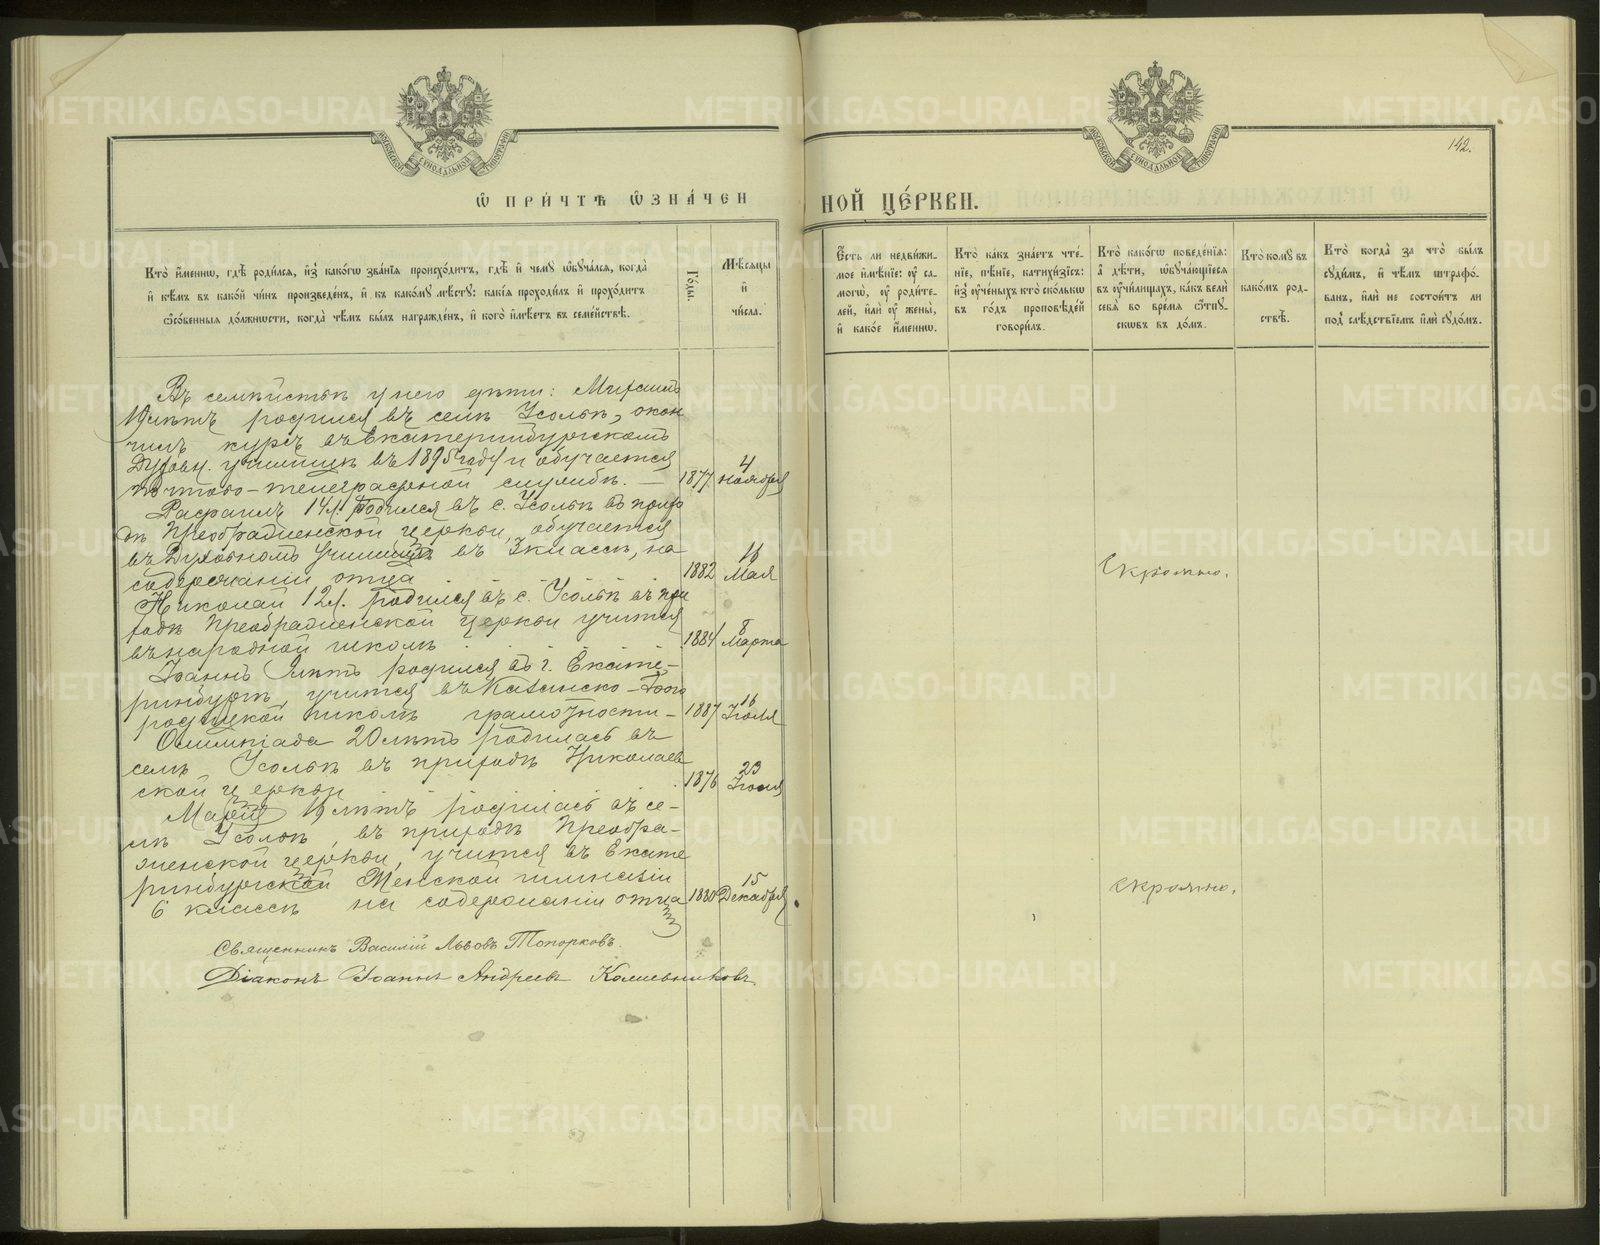 142.
МОСКОВСКОЙ СѴНОДАЛЬНОЙ ТИПОГРАФІИ
МОСКОВСКОЙ СѴНОДАЛЬНОЙ ТИПОГРАФІИ
Ѿ ПРИ́ЧТѢ ѠЗНА́ЧЕН
НОЙ ЦЕ́РКВИ.
Кто̀ и҆́меннѡ, гдѣ̀ роди́лся, и҆з̾ како́гѡ зва́нїя происхо́дитъ, гдѣ̀ и҆ чему̀ ѡ҆буча́лся, когда̀
и҆ кѣ́мъ въ како́й чи́нъ произведе́нъ, и҆ къ како́му мѣ́сту: какі́я проходи́лъ и҆ прохо́дитъ
ѻ҆со́бенныя до́лжнѡсти, когда̀ тѣ́мъ бы́лъ награжде́нъ, и҆ кого̀ и҆мѣ́етъ въ семе́йствѣ.
Го́ды.
Мѣ́сяцы
и҆
чи́сла.
Є҆́сть ли недви́жи-
мое и҆мѣ́нїе: ᲂу҆ са-
могѡ̀, ᲂу҆ роди́те-
лей, и҆лѝ ᲂу҆ жены̀,
и҆ како́е и҆́меннѡ.
Кто̀ ка́къ зна́етъ чте́-
нїе, пѣ́нїе, катихи́зїсъ:
и҆з̾ ᲂу҆че́ныхъ кто̀ ско́лькѡ
въ го́дъ проповѣ́дей
говори́лъ.
Кто̀ како́гѡ поведе́нїя:
а҆ дѣ́ти, ѡ҆буча́ющїеся
въ ᲂу҆чи́лищахъ, ка́къ велѝ
себѧ̀ во вре́мя ѿпу-
скѡвъ въ до́мъ.
Кто̀ кому̀ въ
како́мъ род-
ствѣ̀.
Кто̀ когда̀ за что̀ бы́лъ
суди́мъ, и҆ тѣ́мъ штрафо́-
ванъ, и҆лѝ не состои́тъ ли
под̾ слѣ́дствїемъ и҆лѝ судо́мъ.
Въ семействѣ у него дѣти: Михаилъ
19 лѣтъ родился въ селѣ Усольѣ, окон
чилъ курсъ въ Екатеринбургскомъ
Духовн. училищѣ въ 1895 году и обучается
почтово-телеграфной службѣ. — 1877 4 ноября
Рафаилъ 14 л. родился въ с. Усольѣ въ прихо
дѣ Преображенской церкви, обучается
въ Духовномъ Училищѣ въ 3 классѣ, на
содержаніи отца 1882 16 Мая Скромно.
Николай 12 л. родился въ с. Усольѣ въ при
ходѣ Преображенской церкви учится
въ народной школѣ 1884 8 Марта
Іоаннъ 9 лѣтъ родился въ г. Екате-
ринбургѣ, учится въ Казанско-Бого
родицкой школѣ грамотности- 1887 16 Іюля
Олимпіада 20 лѣтъ родилась въ
селѣ Усольѣ въ приходѣ Николаев
ской церкви 1876 23 Іюля
Марія 19 лѣтъ родилась въ се-
лѣ Усольѣ, въ приходѣ Преобра-
женской церкви, учится въ Екате
ринбургской Женской гимназіи
6 классѣ на содержаніи отца 1880 15 Декабря скромно.
Священникъ Василій Львовъ Топорковъ.
Діаконъ Іоаннъ Андреевъ Колиевниковъ